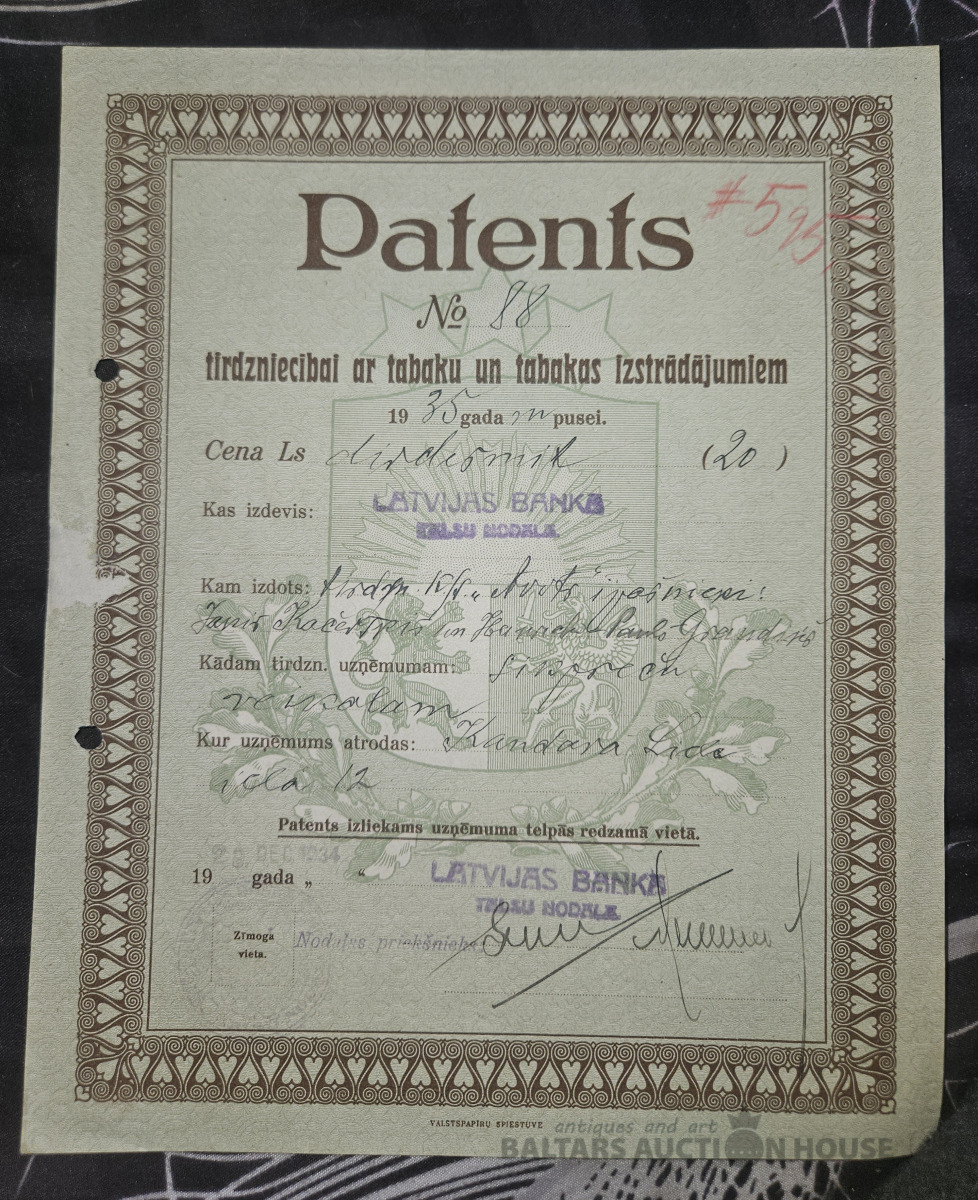 Patents
#595
№ 88
tirdzniecībai ar tabaku un tabakas izstrādājumiem
1935 gada m pusei.
Cena Ls divdesmit (20)
Kas izdevis: LATVIJAS BANKA
TALSU NODAĻA
Kam izdots: tirdzn. īpašnieki:
Jānis Kačerovskis un Pauls Grandiņš
Kādam tirdzn. uzņēmumam: sīkpreču
veikalam
Kur uzņēmums atrodas: Kandava Liela
iela 12
Patents izliekams uzņēmuma telpās redzamā vietā.
DEC 1934
19 gada „ “
LATVIJAS BANKA
TALSU NODAĻA
Zīmoga
vieta.
Nodaļas priekšnieks
VALSTSPAPĪRU SPIESTUVE
antiques and art
BALTARS AUCTION HOUSE